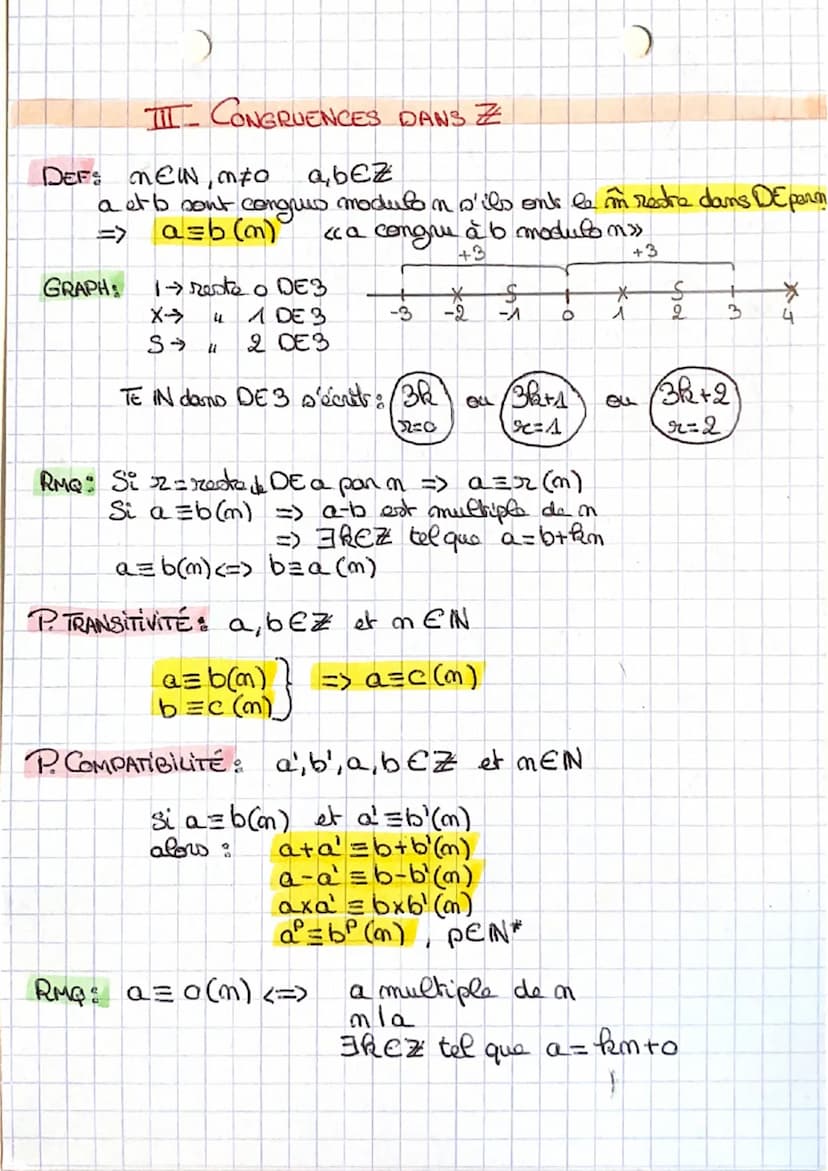 III - CONGRUENCES DANS ℤ
DEF: n∈ℕ, n≠0 a,b∈ℤ
a et b sont congrus modulo n s'ils ont la m̂ reste dans DE par n
=> a≡b(n) «a congru à b modulo n»
+3 +3
GRAPH: I→ reste 0 DE3
X→ " 1 DE3
S→ " 2 DE3
-3 -2 -1 0 1 2 3 4
Tt ℕ dans DE3 s'écrit: 3k ou 3k+1 ou 3k+2
r=0 r=1 r=2
RMQ: Si r = reste de DE a par n => a≡r(n)
Si a≡b(n) => a-b est multiple de n
=> ∃k∈ℤ tel que a=b+kn
a≡b(n) <=> b≡a(n)
P. TRANSITIVITÉ: a,b∈ℤ et n∈ℕ
a≡b(n) } => a≡c(n)
b≡c(n)
P. COMPATIBILITÉ: a',b',a,b∈ℤ et n∈ℕ
si a≡b(n) et a'≡b'(n)
alors : a+a'≡b+b'(n)
a-a'≡b-b'(n)
axa'≡bxb'(n)
aᵖ≡bᵖ(n), p∈ℕ*
RMQ: a≡0(n) <=> a multiple de n
n|a
∃k∈ℤ tel que a=kn+0